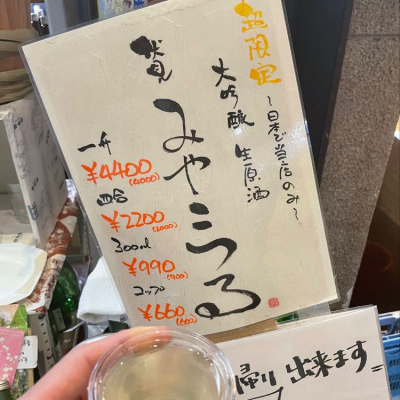 超限定
~日本で当店のみ~
大吟醸 生原酒
伏見
みやこつる
一升
¥4400
(4000)
四合
¥2200
(2000)
300ml
¥990
(900)
コップ
¥660
(600)
帰り 出来ます